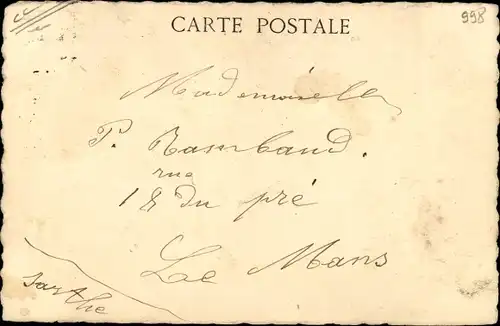 CARTE POSTALE
998
Mademoiselle
P. Rambaud.
rue
18 du pré
Le Mans
Sarthe